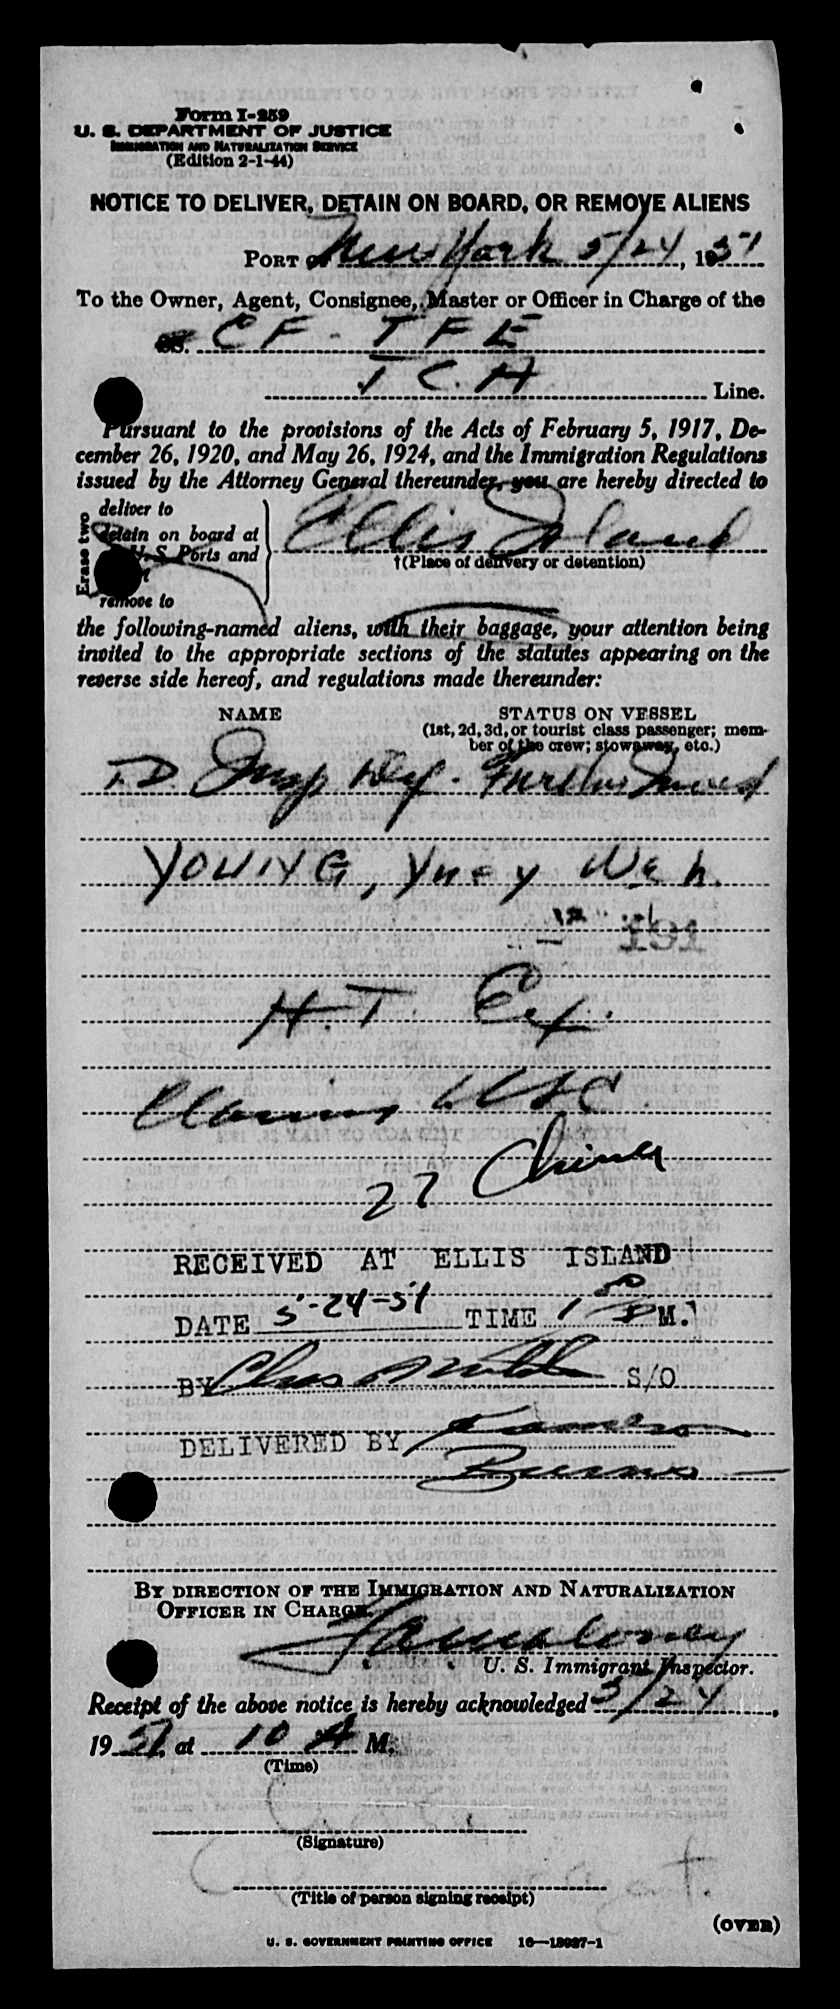 Form I-259
U. S. DEPARTMENT OF JUSTICE
IMMIGRATION AND NATURALIZATION SERVICE
(Edition 2-1-44)
NOTICE TO DELIVER, DETAIN ON BOARD, OR REMOVE ALIENS
PORT of New York 5/24, 1951
To the Owner, Agent, Consignee, Master or Officer in Charge of the
SS. CF-TFE
T C A Line.
Pursuant to the provisions of the Acts of February 5, 1917, De-
cember 26, 1920, and May 26, 1924, and the Immigration Regulations
issued by the Attorney General thereunder, you are hereby directed to
Erase two
deliver to
detain on board at
U. S. Ports and
remove to
Ellis Island
†(Place of delivery or detention)
the following-named aliens, with their baggage, your attention being
invited to the appropriate sections of the statutes appearing on the
reverse side hereof, and regulations made thereunder:
NAME
STATUS ON VESSEL
(1st, 2d, 3d, or tourist class passenger; mem-
ber of the crew; stowaway, etc.)
T.D. Insp
YOUNG, Yuey Wah.
H.T Ex.
Claiming USC
27 China
RECEIVED AT ELLIS ISLAND
DATE 5-24-51 TIME 1 00 P M.
BY Chas S/O
DELIVERED BY
Burns
BY DIRECTION OF THE IMMIGRATION AND NATURALIZATION
OFFICER IN CHARGE.
U. S. Immigrant Inspector.
Receipt of the above notice is hereby acknowledged 5/24,
1951, at 10 A M.
(Time)
(Signature)
(Title of person signing receipt)
(OVER)
U. S. GOVERNMENT PRINTING OFFICE 16—18087-1